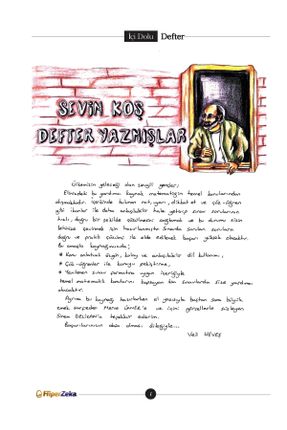 İçi Dolu Defter
SEVİN KOŞ
DEFTER YAZMIŞLAR
Ülkemizin geleceği olan sevgili gençler;
Elinizdeki bu yardımcı kaynak matematiğin temel konularından
oluşmaktadır. İçerisinde bulunan not, uyarı, dikkat et ve çöz-öğren
gibi ikonlar ile daha anlaşılabilir hale getirip sınav sorularının
hızlı, doğru bir şekilde çözülmesini sağlamak ve bu durumu sizin
lehinize çevirmek için hazırlanmıştır. Sınavda sorulan sorulara
doğru ve pratik çözümü ile elde edilecek başarı yüksek olacaktır.
Bu amaçla kaynağımızda;
Konu anlatımlı özgün, kolay ve anlaşılabilir dil kullanımı,
Çöz-öğrenler ile konuyu pekiştirme,
Yenilenen sınav formatına uygun içeriğiyle
temel matematik konularını kapsayan tüm sınavlarda size yardımcı
olacaktır.
Ayrıca bu kaynağı hazırlarken el yazısıyla baştan sona büyük
emek sarfeden
ve içini görsellerle süsleyen
Sinem
teşekkür ederim.
Başarılarınızın daim olması dileğiyle...
Veli
FliperZeka